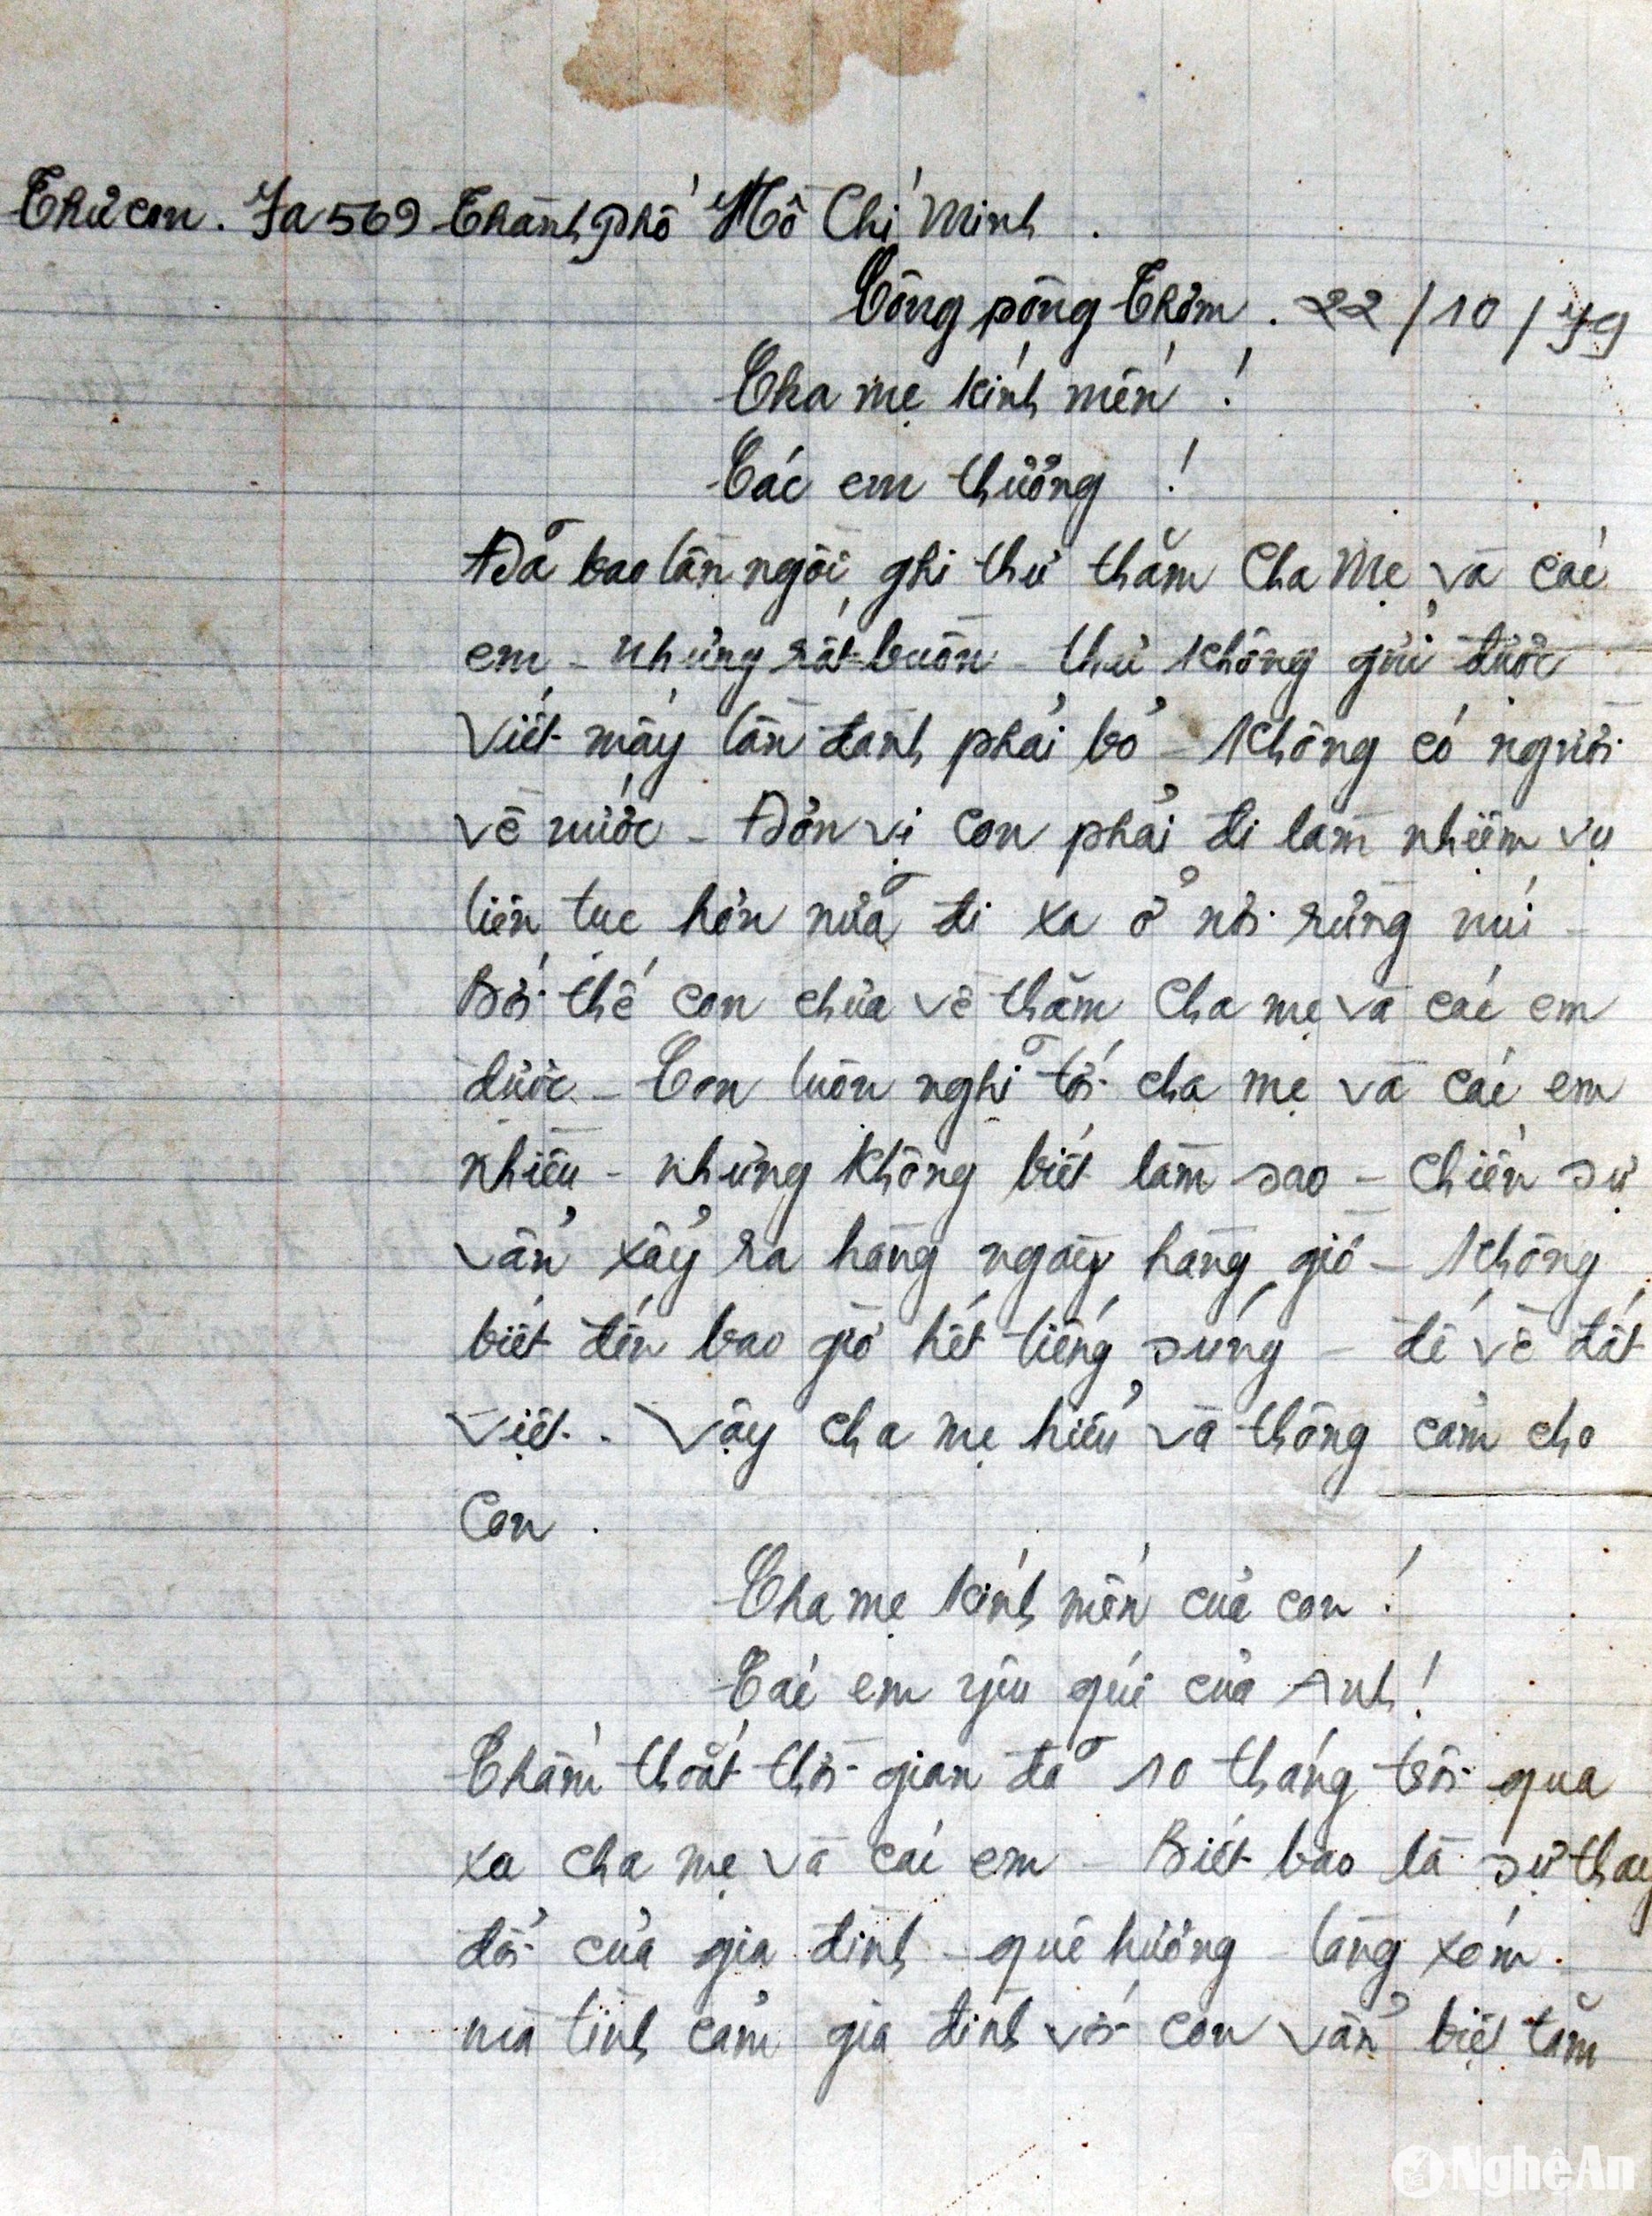 Thư con. 7a569 Thành phố Hồ Chí Minh.
Công pông Thơm. 22/10/79
Cha mẹ kính mến!
Các em thương!
Đã bao lần ngồi ghi thư thăm Cha Mẹ và các
em - nhưng rất buồn - thư không gửi được
viết mấy lần đành phải bỏ - không có người
về nước - Đơn vị con phải đi làm nhiệm vụ
liên tục hơn nữa đi xa ở nơi rừng núi -
Bởi thế con chưa về thăm Cha mẹ và các em
được - Con luôn nghĩ tới cha mẹ và các em
nhiều - nhưng không biết làm sao - chiến sự
vẩn xẩy ra hàng ngày hàng giờ - không
biết đến bao giờ hết tiếng súng - để về đất
việt. Vậy cha mẹ hiểu và thông cảm cho
con.
Cha mẹ kính mến của con!
Các em yêu quí của Anh!
Thấm thoắt thời gian đã 10 tháng trôi qua
xa cha mẹ và các em - Biết bao là sự thay
đổi của gia đình - quê hương - làng xóm.
mà tình cảm gia đình với con vẩn biệt tăm
NghệAn